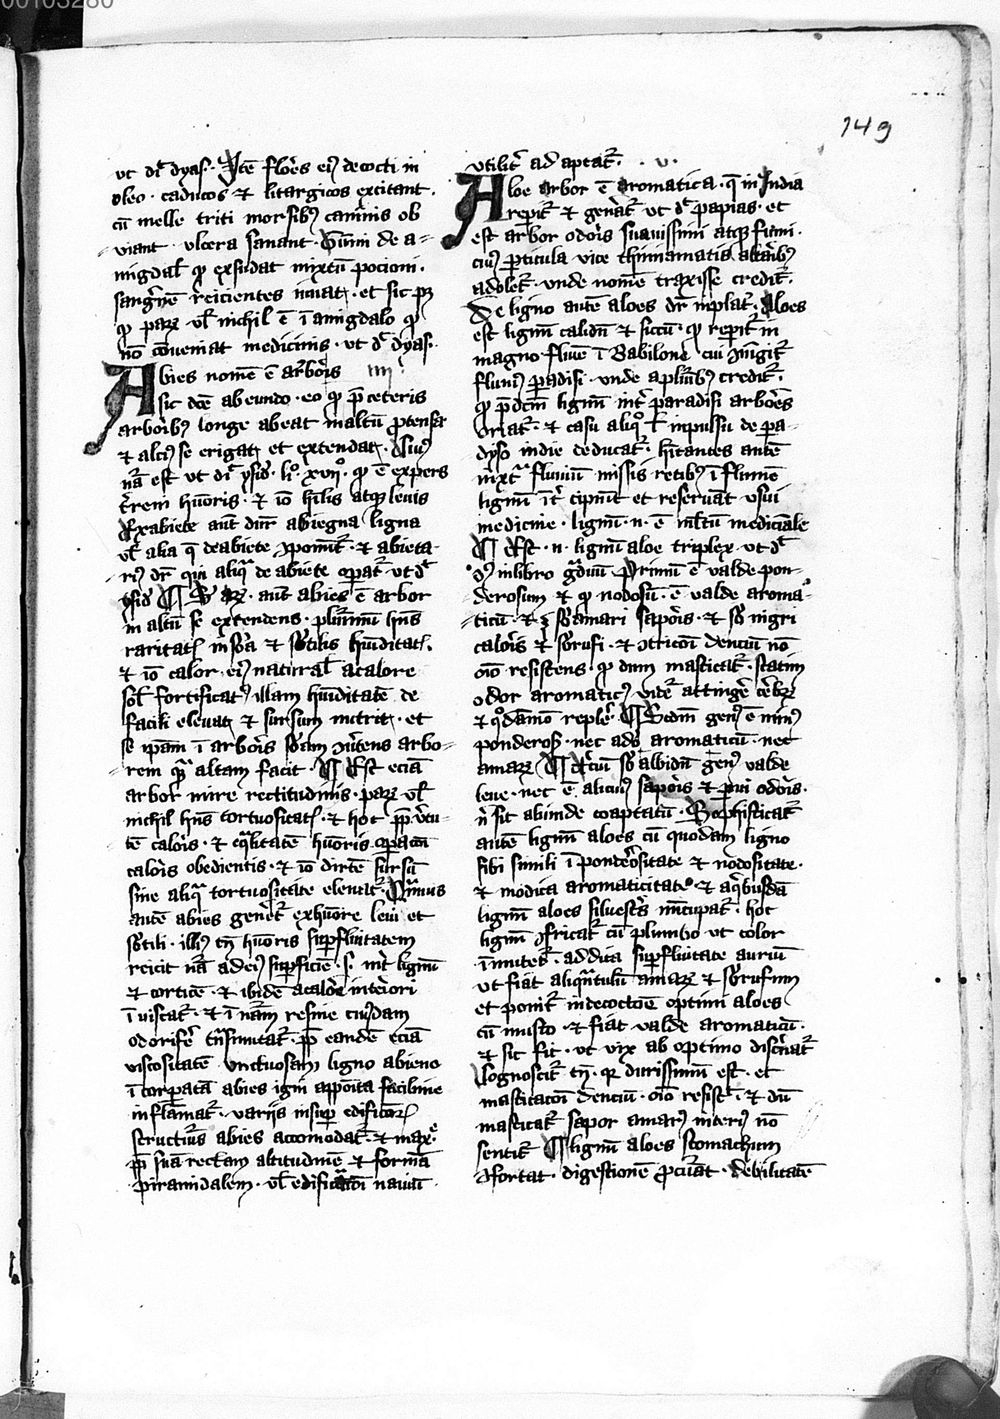 00103280
149
ut dr̄ dyas. Itē flores eiꝰ decocti in
oleo. caducos et litargicos excitant.
cū melle triti morsibꝰ caninis ob
viant. ulcera sanant. Gūmi de a-
migdal qd exsudat mixtū pocioni.
sangnē reicientes iuuat. et sic pꝫ
qd parꝫ ul nichil ē ī amigdalo qd
nō conueniat medicinis. ut dr dyas.
Abies nomē ē arboris iiii.
sic dcē ab eundo. eo qd p̄ ceteris
arboribꝰ longe abeat in altū ptensa
et alciꝰ se erigat et extendat. Cuiꝰ
nā est ut dr ysid. li. xvii. qd ē expers
terreni hūoris. et iō hilis atqꝫ leuis
Ex abiete aut dnr abiegna ligna
ul alia q̄ de abiete ponit. et abieta-
riꝰ dr qui aliqa de abiete opat ut dr
ysid aut abies ē arbor
in altū se extendens. plurimū hns
raritat in sba et sbtilis hūiditat.
et iō calor eiꝰ natural a calore
sol fortificatꝰ illam hūiditatē de
facili eleuat et sursum nutrit. et
se ipam ī arboris sbam uertens arbo-
rem q̄ altam facit. Est eciā
arbor mire rectitudinis. parꝫ ul
nichil hns tortuositat. et hoc pp uirtu-
tē caloris. et qlitatē hūoris opacōi
caloris obedientis. et iō dirēte sursū
sine aliqa tortuositate eleuat. Primus
autē abies generat ex hūore leui et
sbtili. illiꝰ tn̄ hūoris supfluitatem
reicit nā ad eiꝰ supficiē. s. int lignū
et corticē. et ibidē a calore interiori
īuiscat. et ī nām resine cuiusdam
odorifere tnsmutat. pp eandē eciā
viscositatē unctuosam ligno abieno
īcorpatā abies igni appoita facilime
inflāmat. variis insup edificioꝝ
structuris abies accomodat. et maxe
pp suā rectam altitudinē et formā
piramidalem. ul edificacōi nauiū.
utilit adaptat. v.
Aloe arbor ē aromatica. q̄ in India
reperit et generat ut dr papias. et
est arbor odoris suauissimi atqꝫ sumi.
cuiꝰ particula vice thimiamatis altaribꝰ
adolet. unde nomē traxisse credit.
De ligno autē aloes dr in plat. Aloes
est lignū calidū et siccū. qd reperit in
magno fluuie ī Babilone cui iungit
fluuiꝰ paradisi. unde a pluribꝰ credit.
qd pdcm lignū int paradisi arbores
oriat. et casu aliqo ul inpulsu de pa-
dyso indie deducat. hītantes autē
iuxta fluuiū missis retibꝰ ī flumē
lignū ... cipiunt et reseruāt usui
medicine. lignū. n. ē multū medicīale
Est. n. lignū aloe triplex ut dr
in libro gdum Primū ē valde pon-
derosum et qd nodosū. ē valde aroma-
ticū. et sbamari saporis. et sb nigri
coloris et sbrufi. et tricōi denciū nō
oīo resistens. qd dum masticat. statim
odor aromaticꝰ uidet attingere cerebꝝ
et qodamo replere. Secdm genꝰ ē minꝰ
ponderosū. nec adeo aromaticū. nec
amarꝫ Terciū sb albidū genꝰ valde
leue. nec ē alicuiꝰ saporis et parui odoris.
n sit abinde coaptatū. Sophisticat
autē lignū aloes cū quodam ligno
sibi simili ī ponderositate et nodositate.
et modica aromaticitate. et a qbusdā
lignū aloes siluestris nūcupat. hoc
lignū fricat cū plumbo ut color
īmutet. addita supfluitate auriū
ut fiat aliqntulū amarꝫ et sbrufum
et ponit in decoctōe optimi aloes
cū musco. et fiat valde aromaticū.
et sic fit. ut vix ab optimo discnat
Cognoscit tn̄. qr durissimū est. et
masticacōi denciū. oīo resistit. et dū
masticat sapor amarꝰ interiꝰ nō
sentit lignū aloes stomachum
fortat. digestionē pcurat. debilitatē